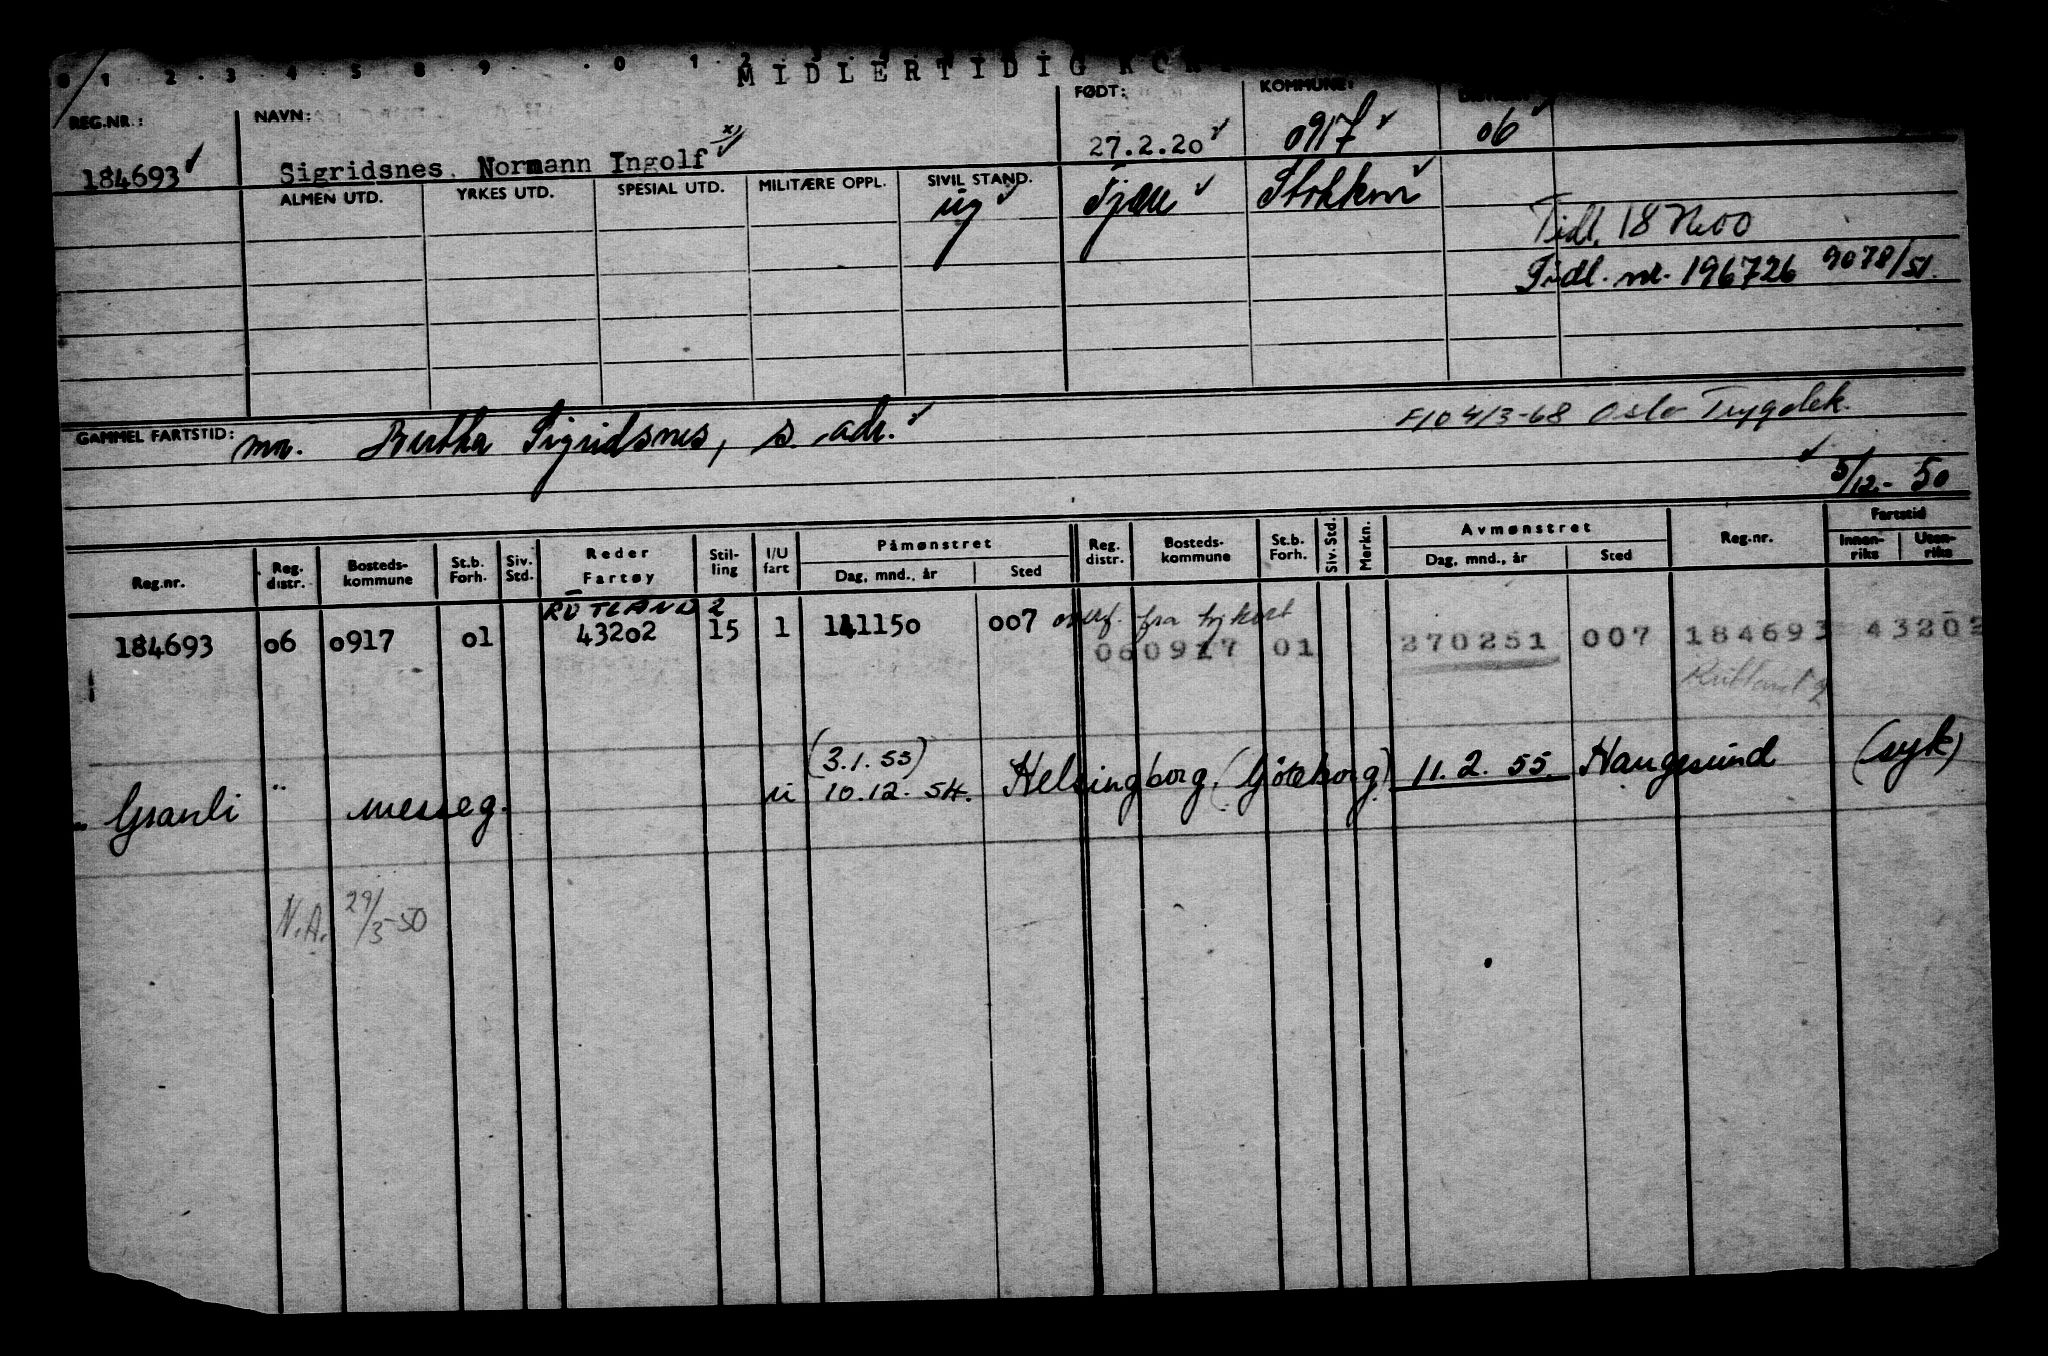 0 1 2 3 4 5 8 9 0 1 2
MIDLERTIDIG
REG.NR.: NAVN: FØDT: KOMMUNE:
184693 Sigridsnes Normann Ingolf x) 27.2.20 0917 06
ALMEN UTD. YRKES UTD. SPESIAL UTD. MILITÆRE OPPL. SIVIL STAND.
ug Tjøme Stokken
Tidl. 18
Tidl. nr. 196726 9078/51.
GAMMEL FARTSTID: mor. Bertha Sigridsnes, s. adr.
F10 4/3-68 Oslo Trygdek.
5/12.- 50
Reg.nr. Reg. distr. Bosteds-kommune St.b. Forh. Siv. Std. Reder Fartøy Stil-ling I/U fart Påmønstret Dag, mnd., år Sted Reg. distr. Bosteds-kommune St.b. Forh. Siv. Std. Merkn. Avmønstret Dag, mnd., år Sted Reg.nr. Fartstid Innen-riks Uten-riks
RUTLAND 2
184693 06 0917 01 43202 15 1 141150 007 overf. fra h.kort
060917 01 270251 007 184693 43202
Rutland 2
(3.1.55)
Granli " messeg. u 10.12.54. Helsingborg (Göteborg) 11.2.55. Haugesund (syk)
N.A. 29/3-50